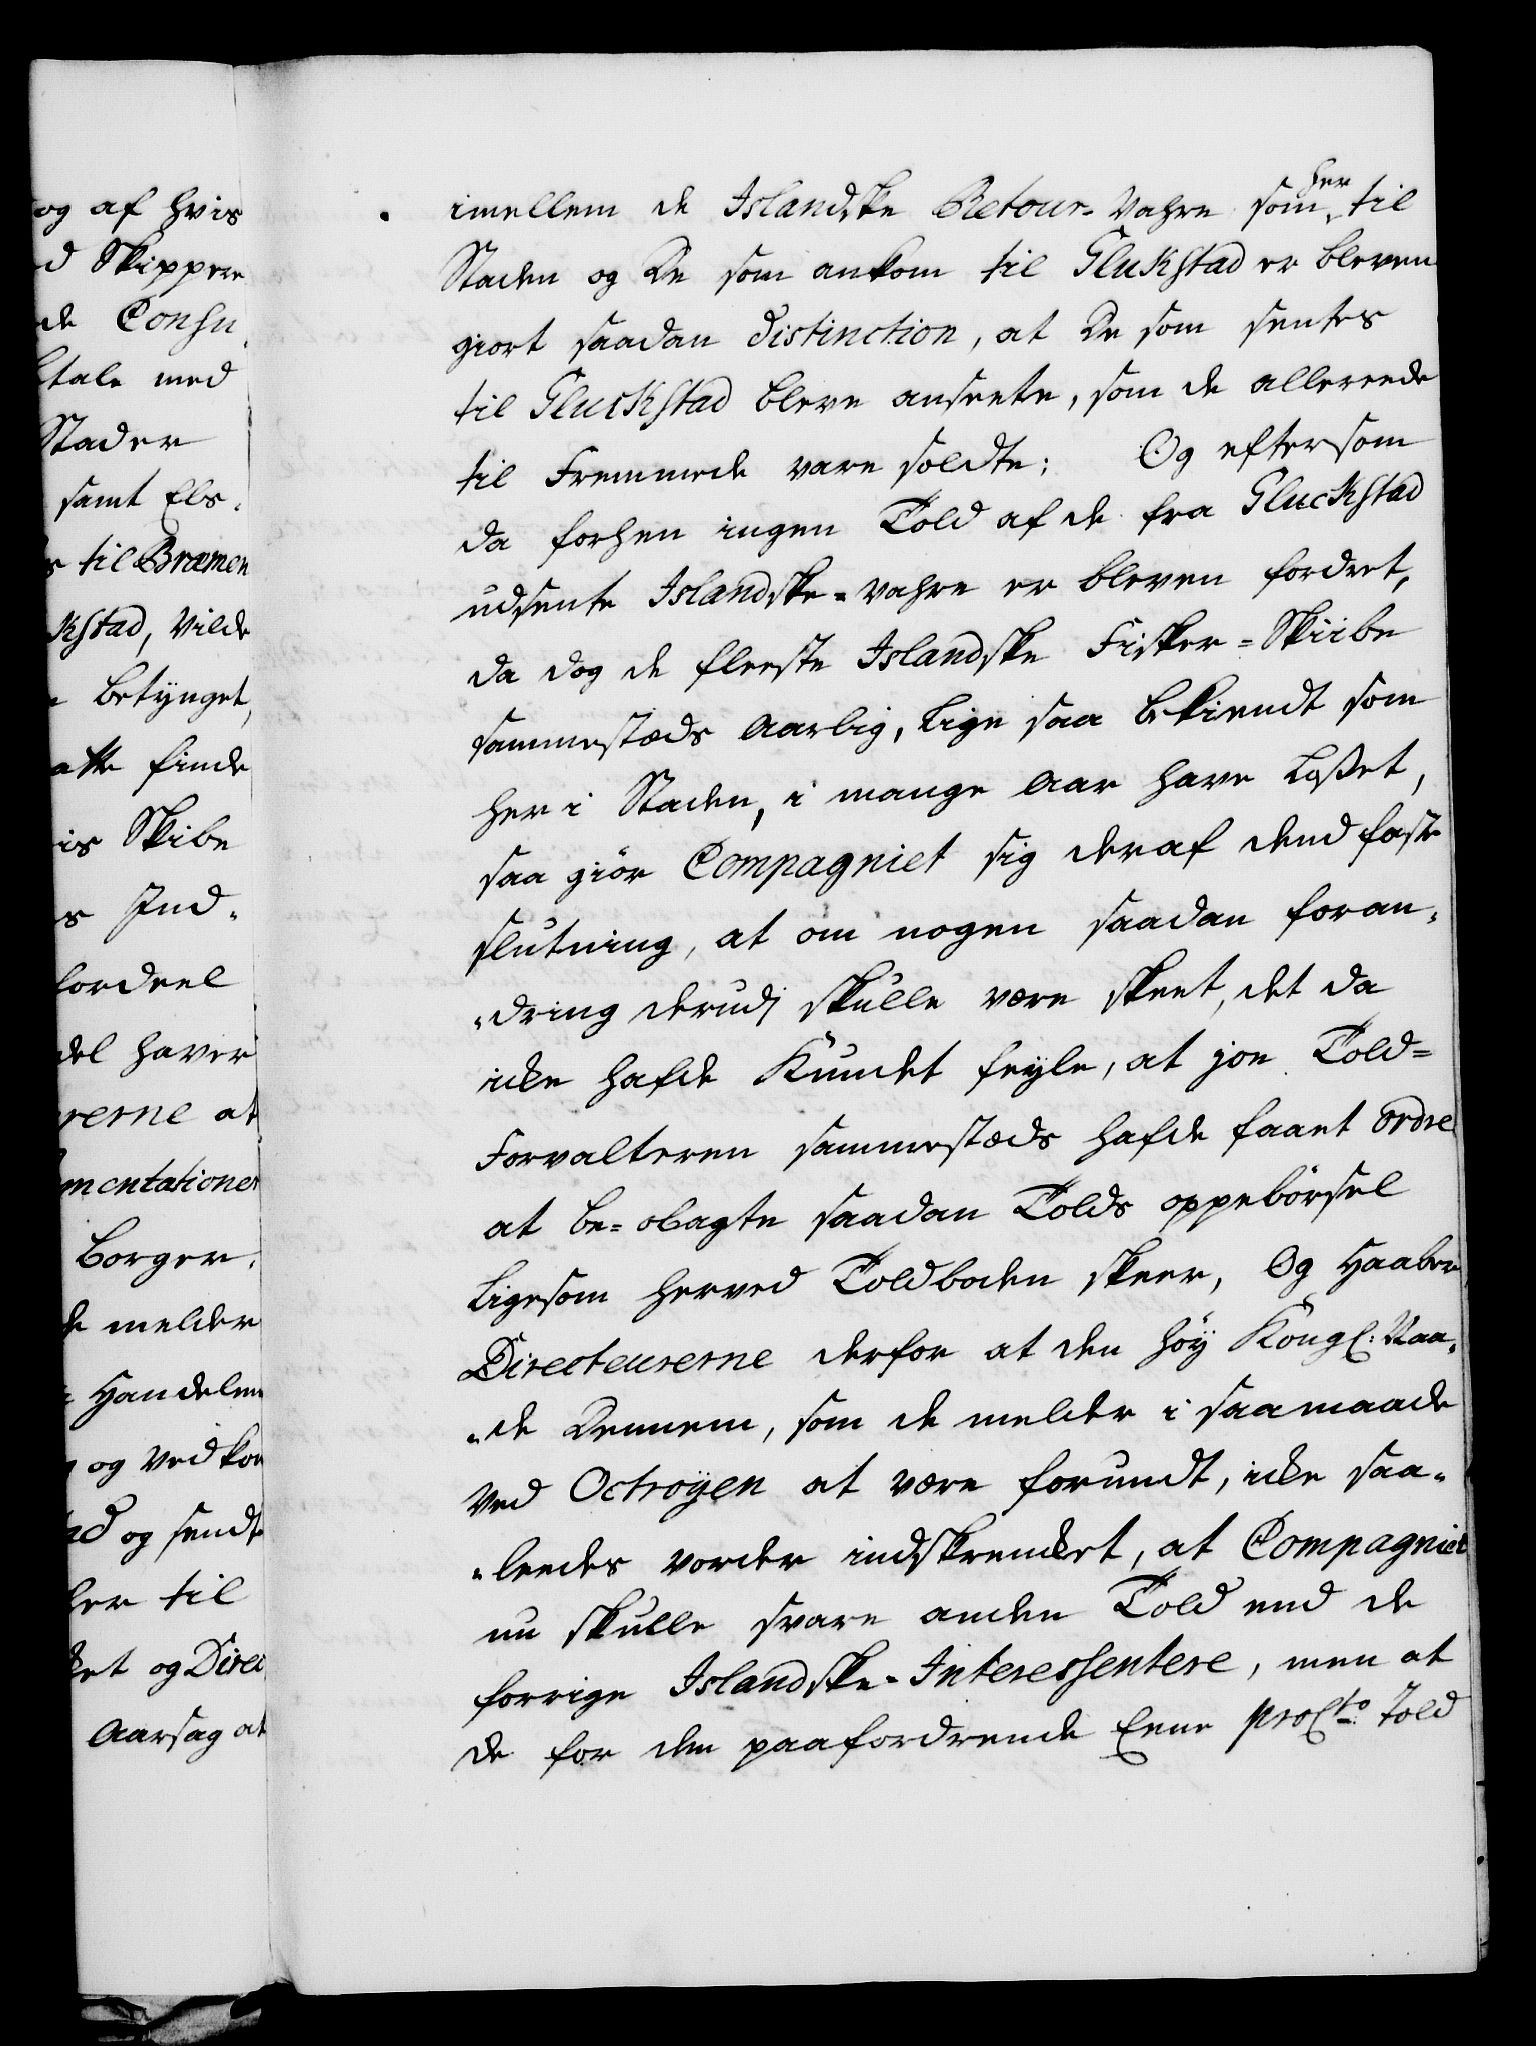 og af hvis
d Skippere
de Consu
tale med
Stader
samt Els-
s til Bræmen
kstad, vilde
betynget,
atte finde
is Skibe
s Ind-
fordeel
del haver
rerne at
mentationer
Borger-
de melder
Handelen
og ved kom
ad og sendt
her til
ket og Direc
Aarsag at
imellem de Islandske Retour-Vahre som her til
Staden og De som ankom til Glukstad er bleven
giort saadan Distinction, at De som sentes
til Gluckstad bleve anseete, som de allereede
til Fremmede vare soldte; Og eftersom
da forhen ingen Told af de fra Gluckstad
udsente Islandske-Vahre er bleven fordret,
da dog de fleeste Islandske Fisker-Skiibe
sammestæds Aarlig, lige saa bekiendt som
her i Staden, i mange Aar have Loßet,
saa giör Compagniet sig deraf dend faste
slutning, at om nogen saadan foran-
-dring derudj skulle være skeet, det da
icke hafde Kundet feyle, at joe Told-
Forvalteren sammestæds hafde faaet ordre
at be-obagte saadan Tolds oppebörsel
ligesom herved Toldboden skeer, Og Haaber
Directeurerne derfor at den höy Kongl: Naa-
-de Dennem, som de melder i saamaade
ved Octroyen at være forundt, icke saa-
-leedes vorder indskrencket, at Compagniet
nu skulle svare anden Told end de
forrige Islandske-Interessentere, men at
de for den paafordrende Eene proCto: Told